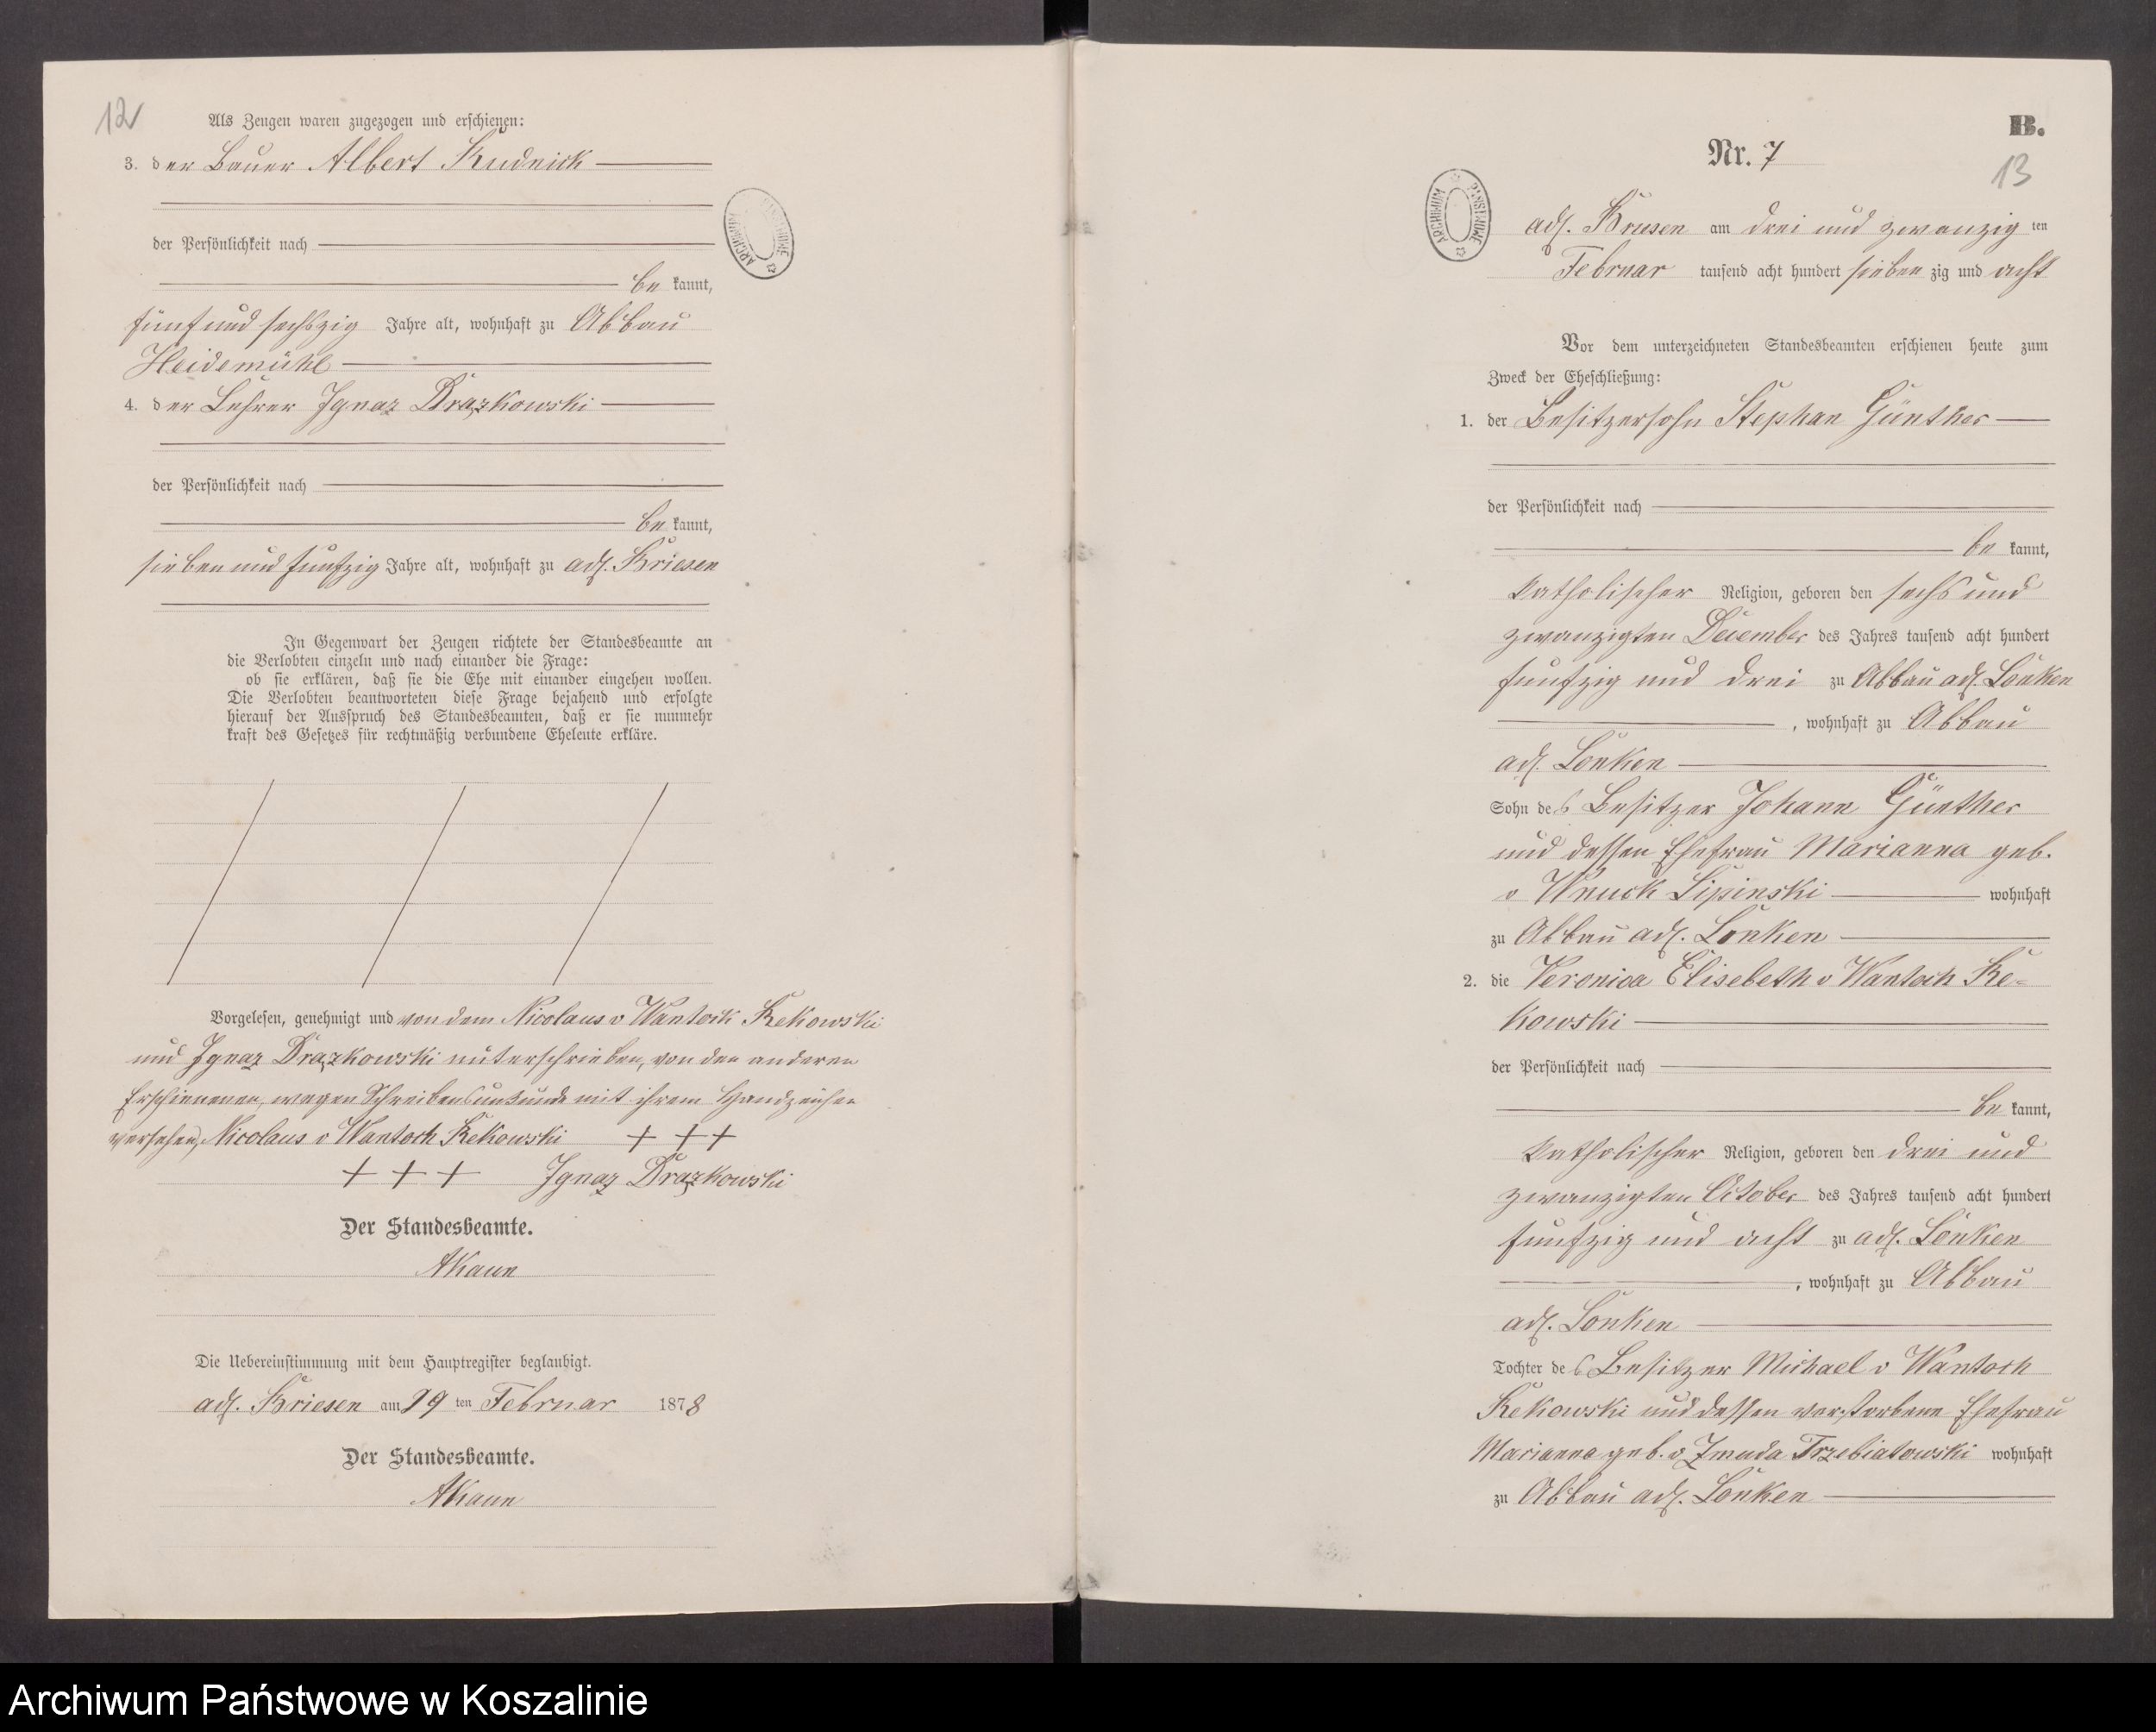 12
Als Zeugen waren zugezogen und erschienen:
3. der Bauer Albert Rudnick
der Persönlichkeit nach
be kannt,
fünf und sechszig Jahre alt, wohnhaft zu Abbau
Heidemühl
4. der Lehrer Ignaz Drązkowski
der Persönlichkeit nach
be kannt,
sieben und funfzig Jahre alt, wohnhaft zu adl. Briesen
In Gegenwart der Zeugen richtete der Standesbeamte an
die Verlobten einzeln und nach einander die Frage:
ob sie erklären, daß sie die Ehe mit einander eingehen wollen.
Die Verlobten beantworteten diese Frage bejahend und erfolgte
hierauf der Ausspruch des Standesbeamten, daß er sie nunmehr
kraft des Gesetzes für rechtmäßig verbundene Eheleute erkläre.
Vorgelesen, genehmigt und von dem Nicolaus v Wantoch Rekowski
und Ignaz Drązkowski unterschrieben, von den anderen
Erschienenen, wegen Schreibensunkunde mit ihrem Handzeichen
versehen, Nicolaus v Wantoch Rekowski + + +
+ + + Ignaz Drązkowski
Der Standesbeamte.
Die Uebereinstimmung mit dem Hauptregister beglaubigt.
adl. Briesen am 19 ten Februar 1878
Der Standesbeamte.
B.
Nr. 7
13
ARCHIWUM PAŃSTWOWE
adl. Brusen am drei und zwanzig ten
Februar tausend acht hundert sieben zig und acht
Vor dem unterzeichneten Standesbeamten erschienen heute zum
Zweck der Eheschließung:
1. der Besitzersohn Stephan Günther
der Persönlichkeit nach
be kannt,
katholischer Religion, geboren den sechs und
zwanzigten December des Jahres tausend acht hundert
funfzig und drei zu Abbau adl. Lonken
, wohnhaft zu Abbau
adl. Lonken
Sohn des Besitzer Johann Günther
und dessen Ehefrau Marianna geb.
v Wnuck Lipinski wohnhaft
zu Abbau adl. Lonken
2. die Veronica Elisebeth v Wantoch Re-
kowski
der Persönlichkeit nach
be kannt,
katholischer Religion, geboren den drei und
zwanzigten October des Jahres tausend acht hundert
funfzig und acht zu adl. Lonken
, wohnhaft zu Abbau
adl. Lonken
Tochter des Besitzer Michael v Wantoch
Rekowski und dessen verstorbene Ehefrau
Marianna geb. v Zmuda Trzebiatowski wohnhaft
zu Abbau adl. Lonken
Archiwum Państwowe w Koszalinie